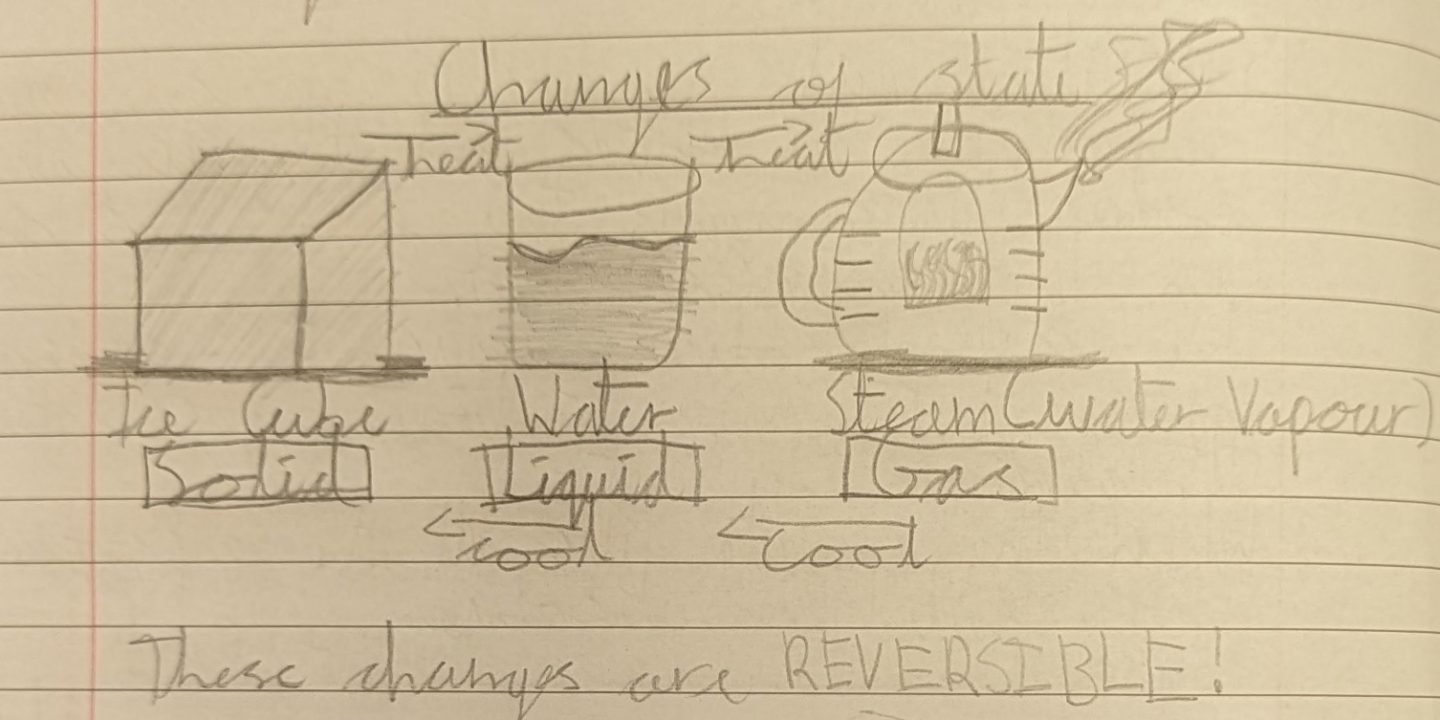 Changes of state
heat heat
Ice Cube Water Steam (water Vapour)
Solid Liquid Gas
cool cool
These changes are REVERSIBLE!